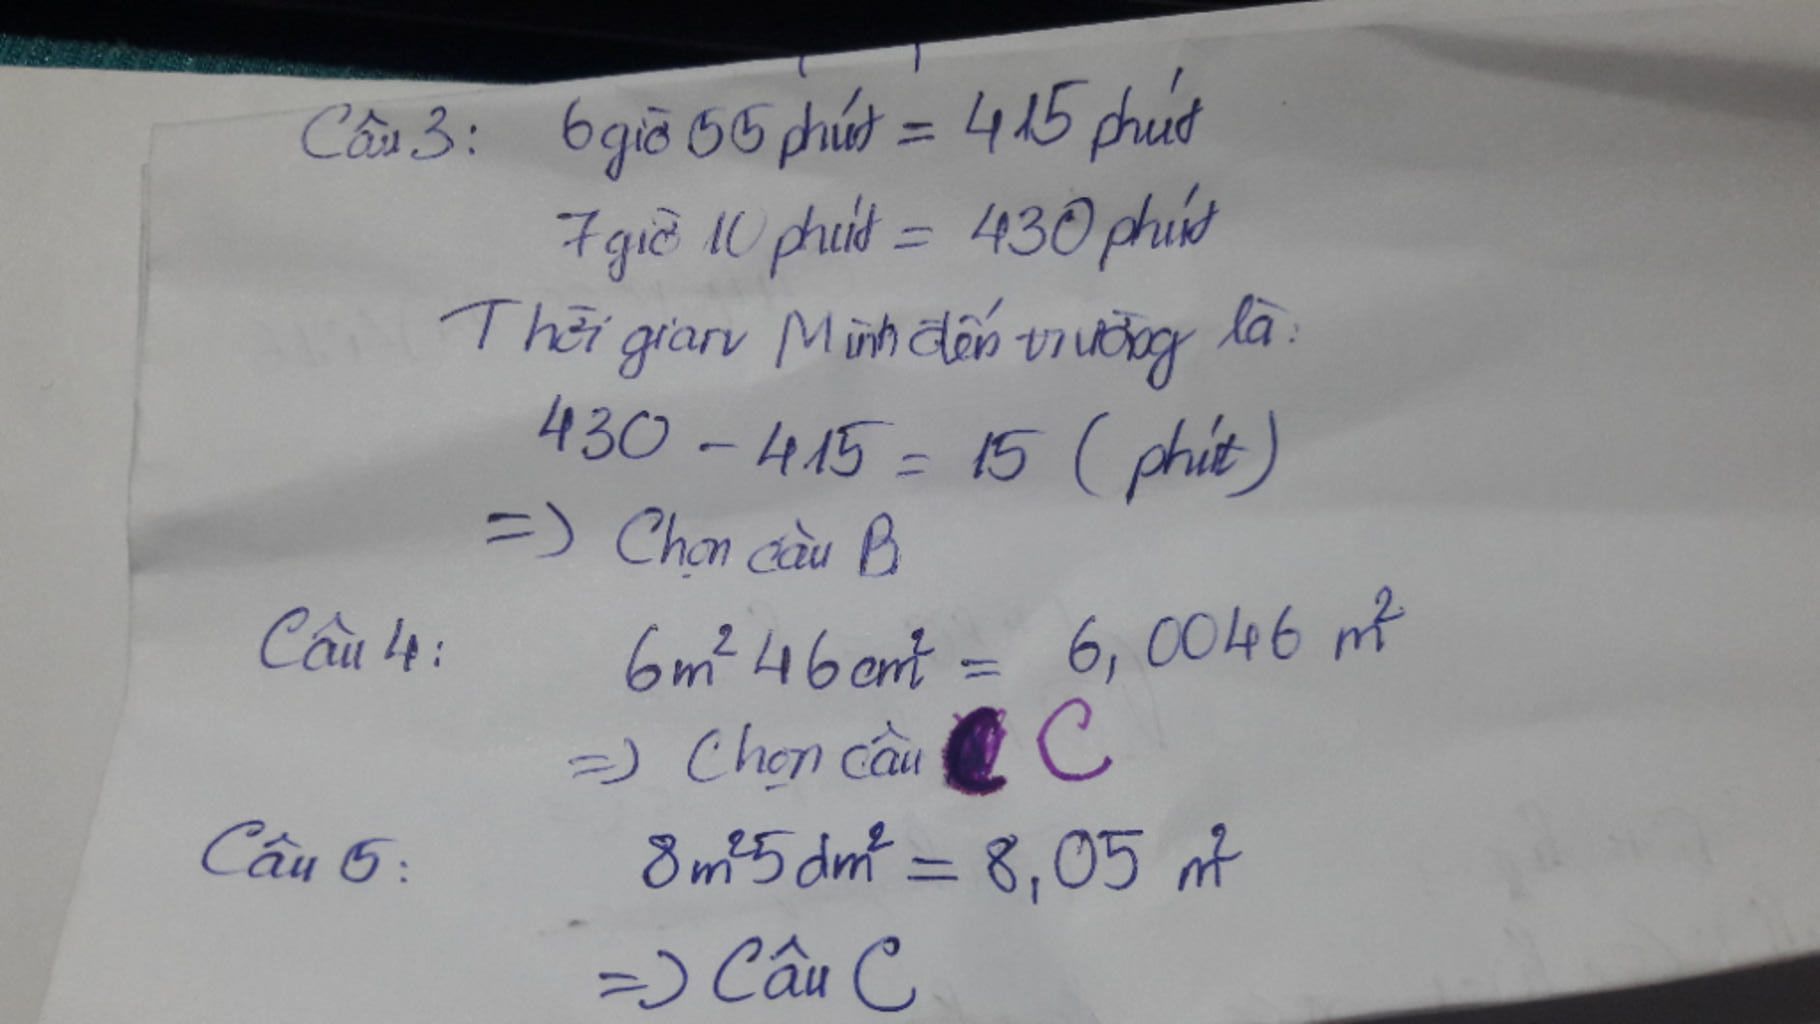 Câu 3: 6 giờ 55 phút = 415 phút
7 giờ 10 phút = 430 phút
Thời gian Minh đến trường là:
430 - 415 = 15 (phút)
=> Chọn câu B
Câu 4: 6m² 46cm² = 6,0046 m²
=> Chọn câu C
Câu 5: 8m²5dm² = 8,05 m²
=> Câu C